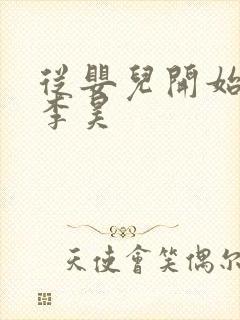 從嬰兒開始
李昊
天使會笑偶尔